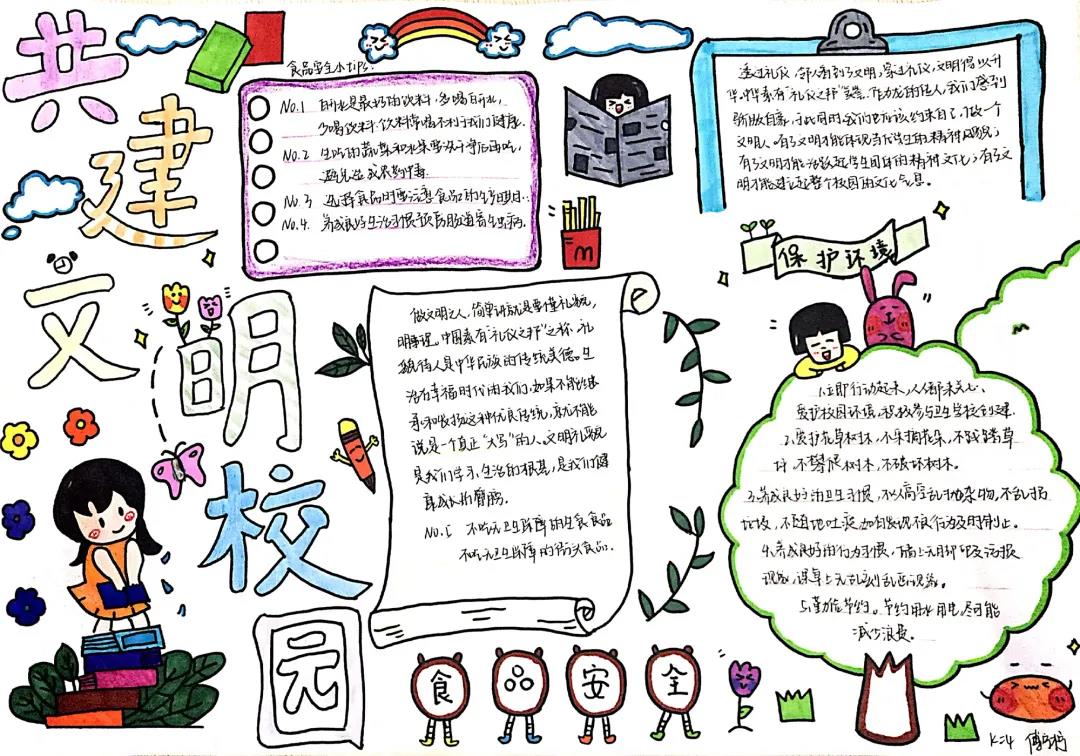 共建文明校园
食品安全小tips:
No.1 白开水是最好的饮料,多喝白开水,
少喝饮料.饮料常喝不利于我们健康.
No.2 生吃的蔬菜和水果要洗干净后再吃,
避免造成农药中毒.
No.3 选择食品时要注意食品的生产日期..
No.4. 养成良好生活习惯预防肠道寄生虫病.
透过礼仪,
文明,
礼仪之邦
作为成的佳人,我们感到
骄傲自豪,于此同时,我们也应该约束自己,做一个
文明人.有了文明才能体现当代学生的精神风貌;
有了文明才能
校园的精神文化;有了文
明才能
整个校园的文化气息.
保护环境
做文明之人,简单讲就是要懂礼貌,
明事理.中国素有"礼仪之邦"之称.礼
貌待人是中华民族的传统美德。生
活在幸福时代的我们,如果不能继
承和发扬这种优良传统,就不能
说是一个真正"大写"的人.文明礼貌
是我们学习、生活的根基,是我们健
康成长的臂膀.
No.5 不吃无卫生保障的生食食品
不吃无卫生保障的街头食品.
1.立即行动起来,人人都来关心、
爱护校园环境,积极参与卫生学校创建.
2.爱护花草树木,不采摘花朵,不践踏草
坪,不攀爬树木,不破坏树木。
3.养成良好的卫生习惯,不从高空乱抛杂物,不乱扔
垃圾,不随地吐痰.如有发现不良行为及时制止。
4.养成良好的行为习惯,墙上无脚印及污损
现象,课桌上无乱刻乱画现象。
5.勤俭节约。节约用水用电尽可能
减少浪费。
食品安全
M